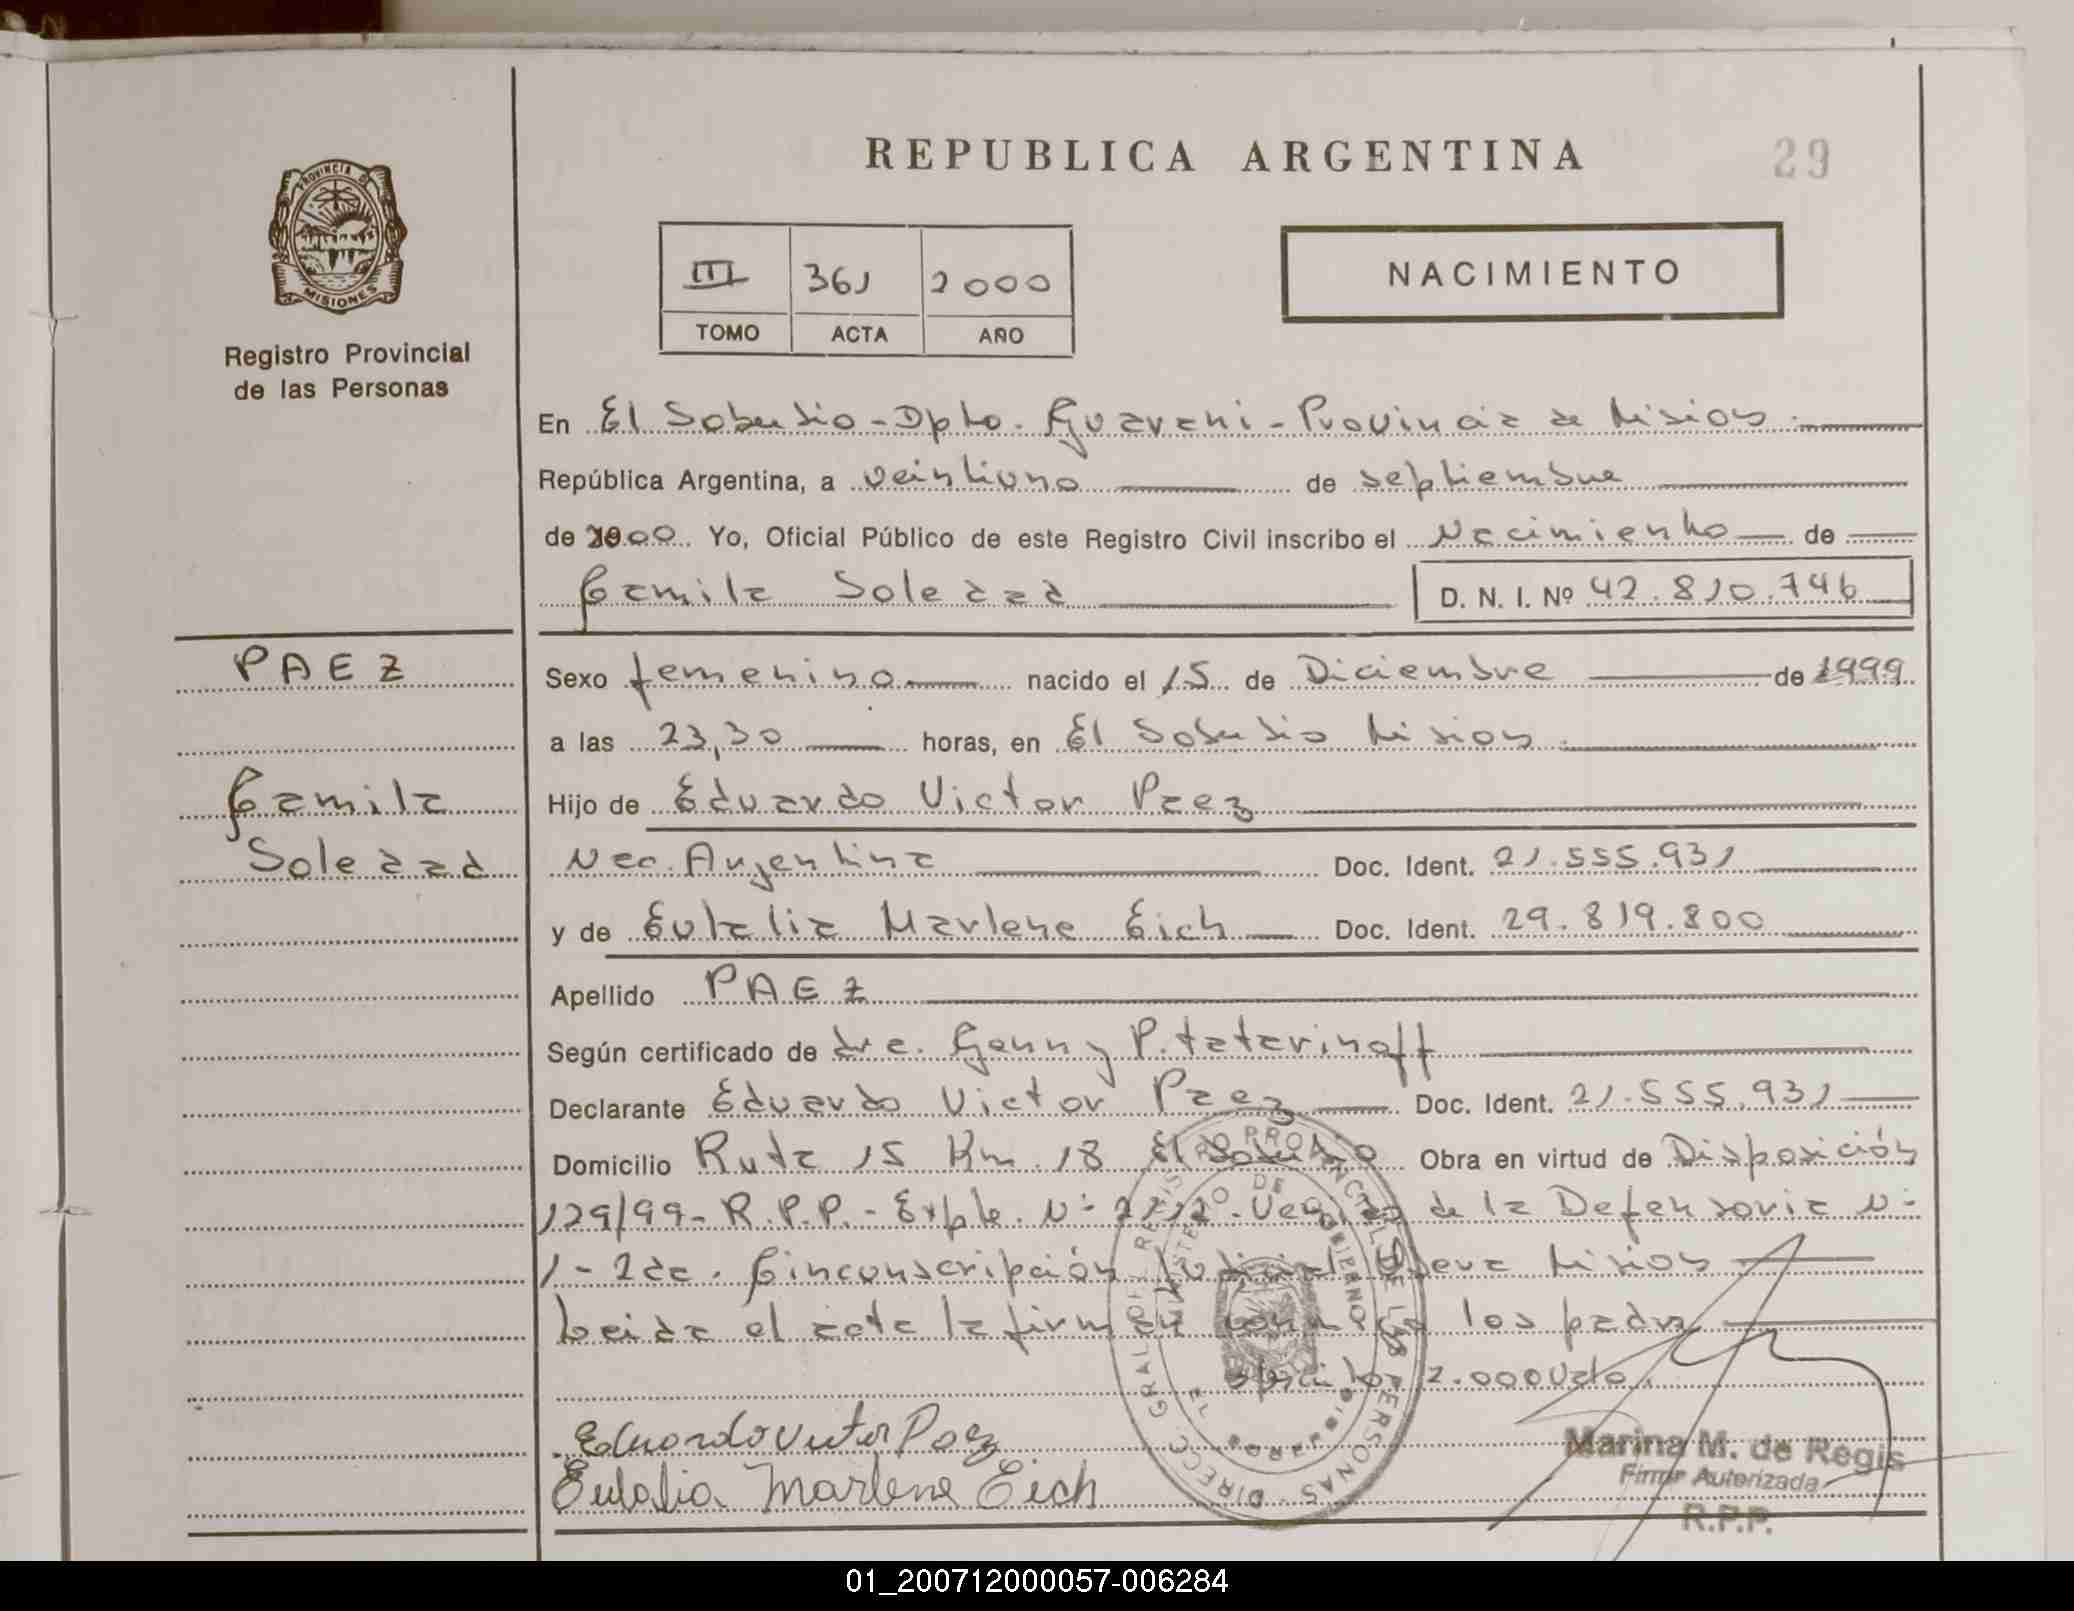 REPUBLICA ARGENTINA
29
PROVINCIA DE
MISIONES
Registro Provincial
de las Personas
III 361 2000
TOMO ACTA AÑO
NACIMIENTO
En El Soberbio - Dpto. Guarani - Provincia de Misiones.
República Argentina, a veintiuno de septiembre
de 2000. Yo, Oficial Público de este Registro Civil inscribo el Nacimiento de
Camila Soledad D. N. I. Nº 42.810.746
PAEZ
Camila
Soledad
Sexo femenino nacido el 15 de Diciembre de 1999
a las 23,30 horas, en El Soberbio Misiones.
Hijo de Eduardo Victor Paez
Nac. Argentina Doc. Ident. 21.555.931
y de Eulalia Marlene Eich Doc. Ident. 29.819.800
Apellido PAEZ
Según certificado de dra. Genny P. tatarinoff
Declarante Eduardo Victor Paez Doc. Ident. 21.555.931
Domicilio Ruta 15 Km. 18 El Soberbio Obra en virtud de Disposición
129/99 - R.P.P. - Expte. Nº de la Defensoria Nº
1 - 2da. Cinconscripción Judicial Obera Misiones
Leida el acta la firman conmigo los padres
2.000 Vale.
Eduardo Victor Paez
Eulalia Marlene Eich
DIRECC. GRAL. DEL REGISTRO PROVINCIAL DE LAS PERSONAS
MINISTERIO DE GOBIERNO
Marina M. de Regis
Firma Autorizada
R.P.P.
01_200712000057-006284